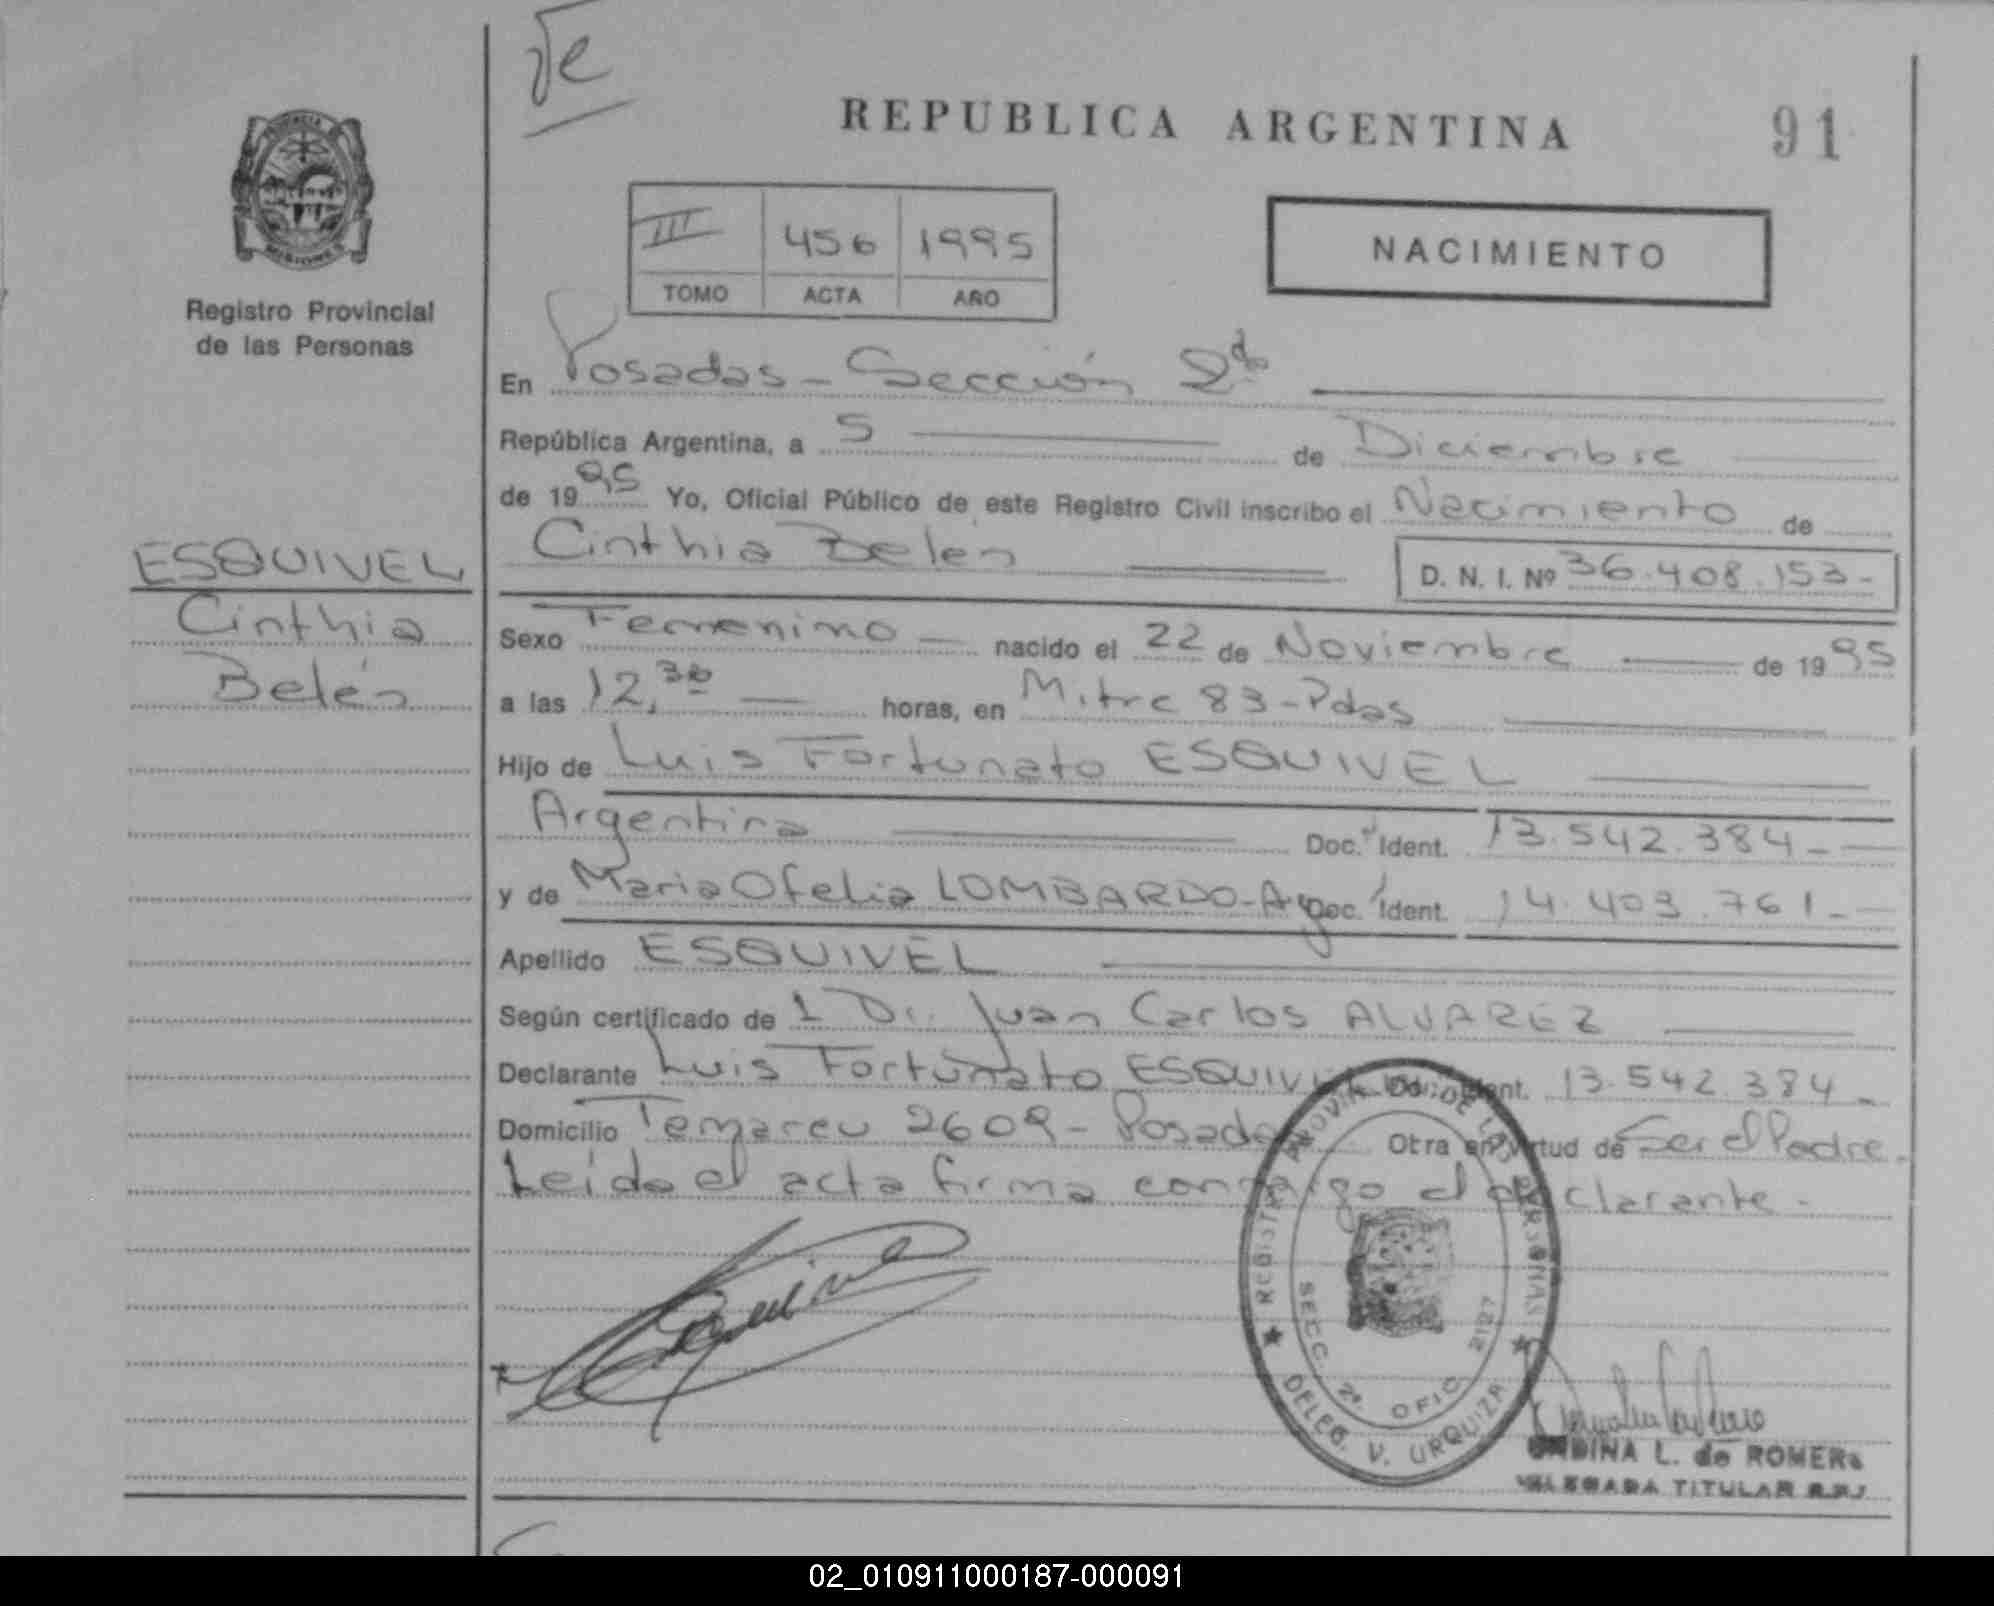 Je
REPUBLICA ARGENTINA
91
PROVINCIA
MISIONES
Registro Provincial
de las Personas
III 456 1995
TOMO ACTA AÑO
NACIMIENTO
En Posadas - Sección 2da
República Argentina, a 5 de Diciembre
de 1995 Yo, Oficial Público de este Registro Civil inscribo el Nacimiento de
Cinthia Belen D. N. I. Nº 36.408.153-
ESQUIVEL
Cinthia
Belén
Sexo Femenino - nacido el 22 de Noviembre de 1995
a las 12,30 horas, en Mitre 83 - Pdas
Hijo de Luis Fortunato ESQUIVEL
Argentina Doc. Ident. 13.542.384-
y de Maria Ofelia LOMBARDO - Arg Doc. Ident. 14.409.761-
Apellido ESQUIVEL
Según certificado de 1 Dr. Juan Carlos ALVAREZ
Declarante Luis Fortunato ESQUIVEL Doc. Ident. 13.542.384-
Domicilio 2609 - Posadas Otra en virtud de Ser el Padre.
Leída el acta firma conmigo el declarante.
REGISTRO PROVINCIAL DE LAS PERSONAS
SECC. 2ª. OFIC. 2127
DELEG. V. URQUIZA
L. de ROMERO
DELEGADA TITULAR R.P.J.
02_010911000187-000091